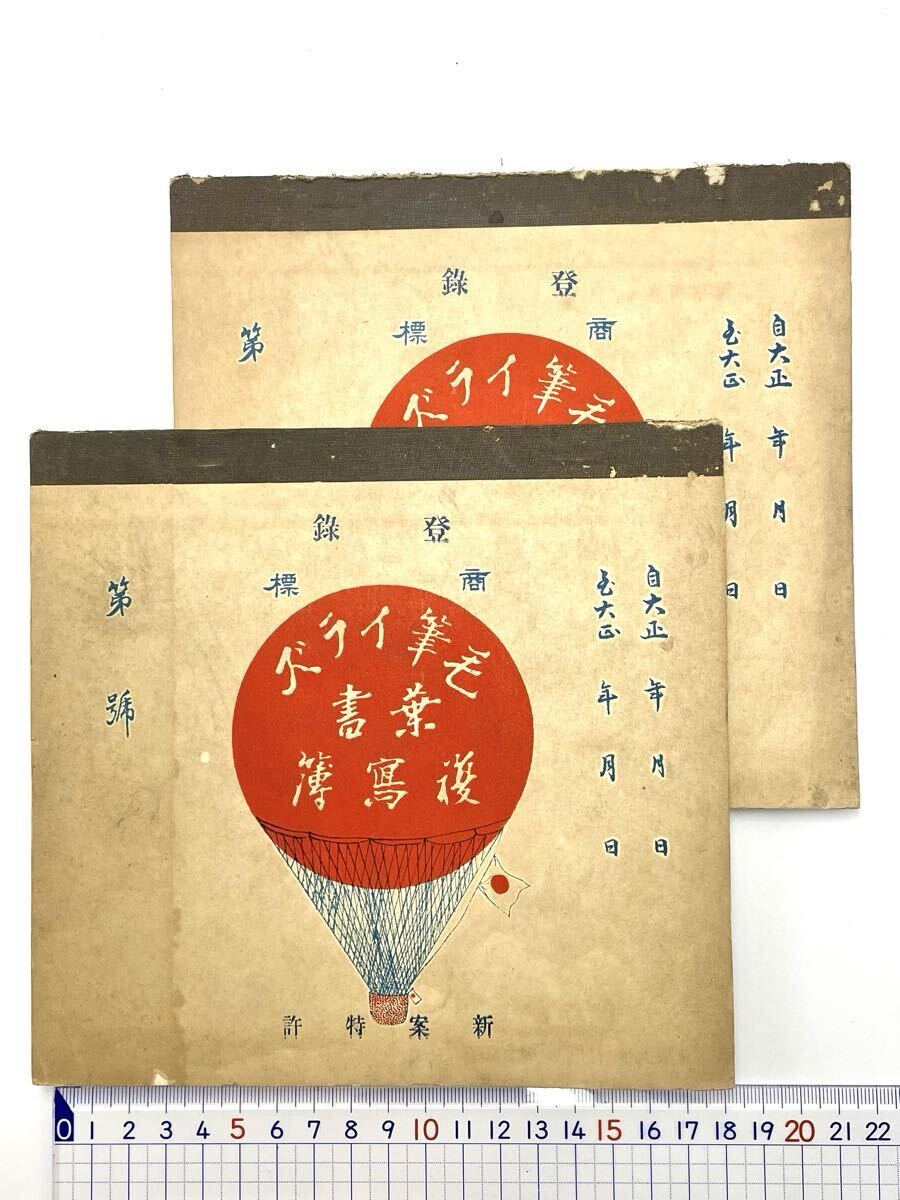 登錄
商標
毛筆イラズ
自大正 年 月 日
至大正 年 月 日
第
登錄
商標
毛筆イラズ
葉書
複寫簿
新案特許
自大正 年 月 日
至大正 年 月 日
第 號
0 1 2 3 4 5 6 7 8 9 10 11 12 13 14 15 16 17 18 19 20 21 22